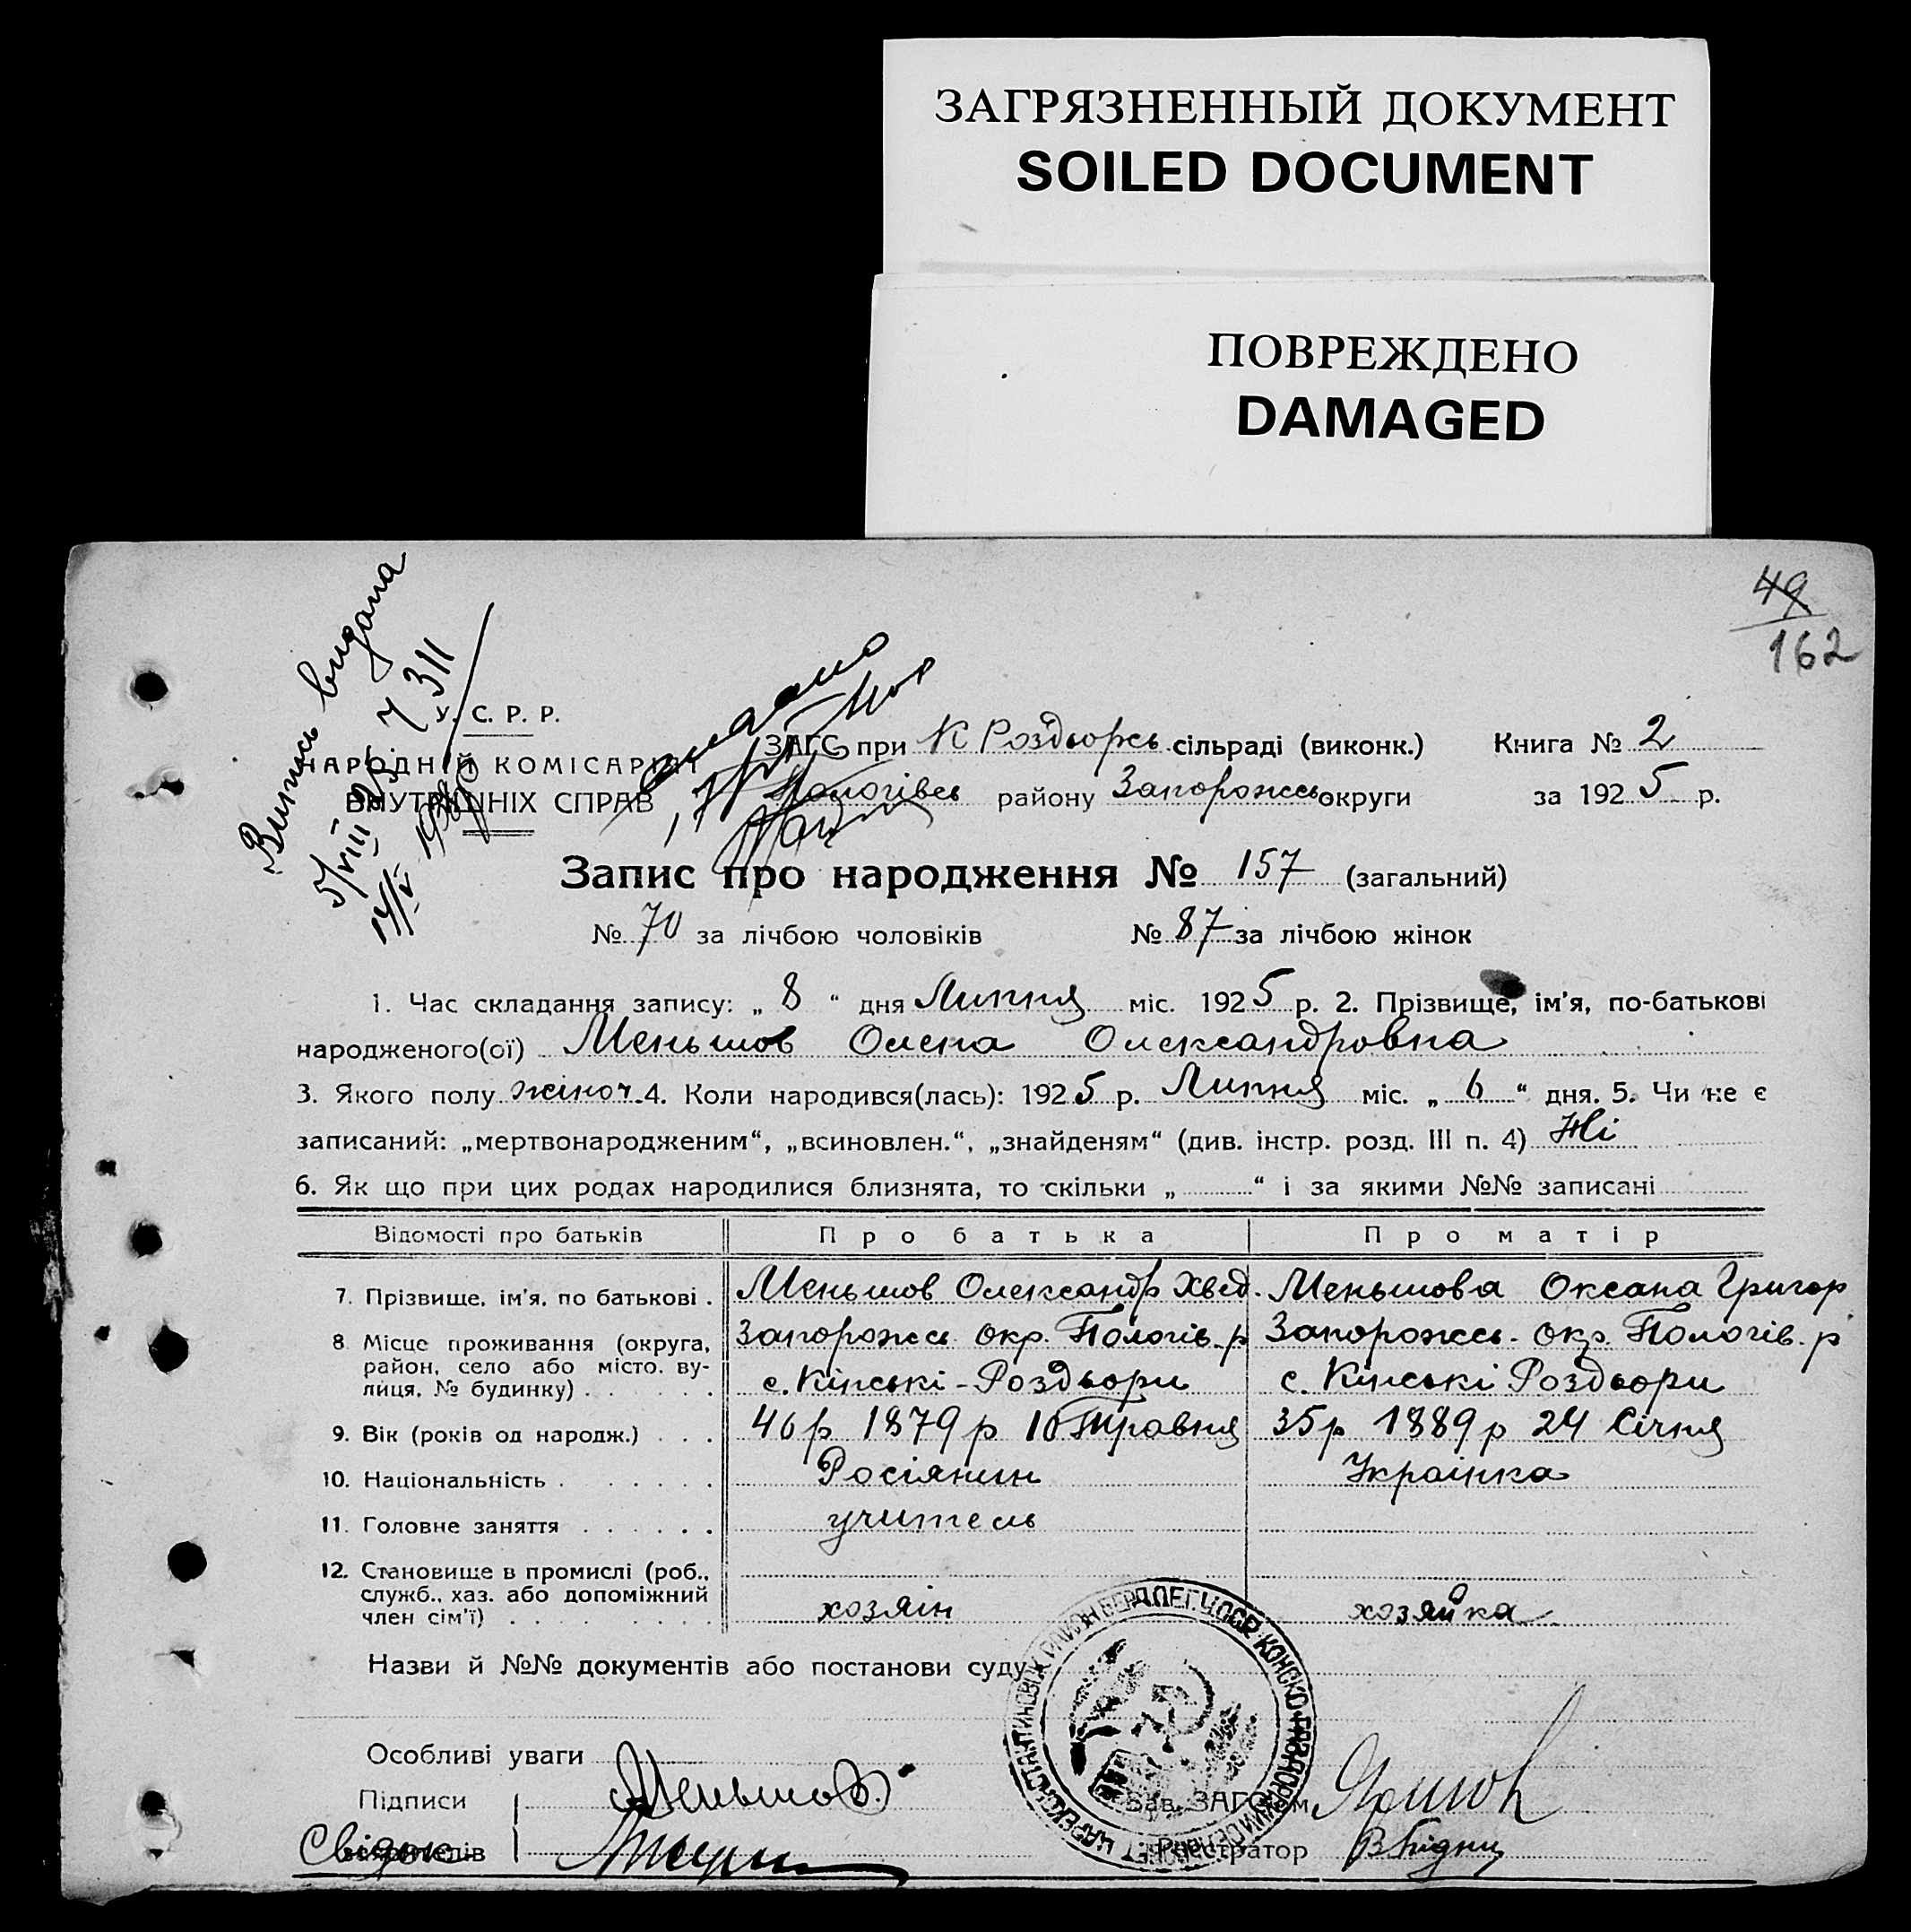 ЗАГРЯЗНЕННЫЙ ДОКУМЕНТ
SOILED DOCUMENT
ПОВРЕЖДЕНО
DAMAGED
49
162
Випись видана
5/VIII 25
У. С. Р. Р.
НАРОДНІЙ КОМІСАРІЯТ
ВНУТРІШНІХ СПРАВ
ЗАГС при К Роздворсь сільраді (виконк.) Книга № 2
Пологівсь району Запорожсь округи за 1925 р.
Запис про народження № 157 (загальний)
№ 70 за лічбою чоловіків № 87 за лічбою жінок
1. Час складання запису: „ 8 “ дня Липня міс. 1925 р. 2. Прізвище, ім'я, по-батькові
народженого(ої) Меньшов Олена Олександровна
3. Якого полу жіноч. 4. Коли народився(лась): 1925 р. Липня міс. „ 6 “ дня. 5. Чи не є
записаний: „мертвонародженим“, „всиновлен.“, „знайденям“ (див. інстр. розд. III п. 4) Ні
6. Як що при цих родах народилися близнята, то скільки „ “ і за якими №№ записані
Відомості про батьків Про батька Про матір
7. Прізвище, ім'я, по батькові . Меньшов Олександр Хвед. Меньшова Оксана Григор
8 Місце проживання (округа, район, село або місто. вулиця, № будинку) Запорожсь окр. Пологів. р Запорожсь. окр. Пологів. р
с. Кінські-Роздвори с. Кінські Роздвори
9. Вік (років од народж.) 46 р 1879 р 10 Травня 35 р 1889 р 24 Січня
10. Національність Росіянин Украінка
11. Головне заняття учитель
12. Становище в промислі (роб., служб., хаз. або допоміжний член сім'ї) хозяін хозяйка
Назви й №№ документів або постанови суду
Особливі уваги
Підписи Меньшов. Зав. ЗАГС'ом
Свідків
Реєстратор